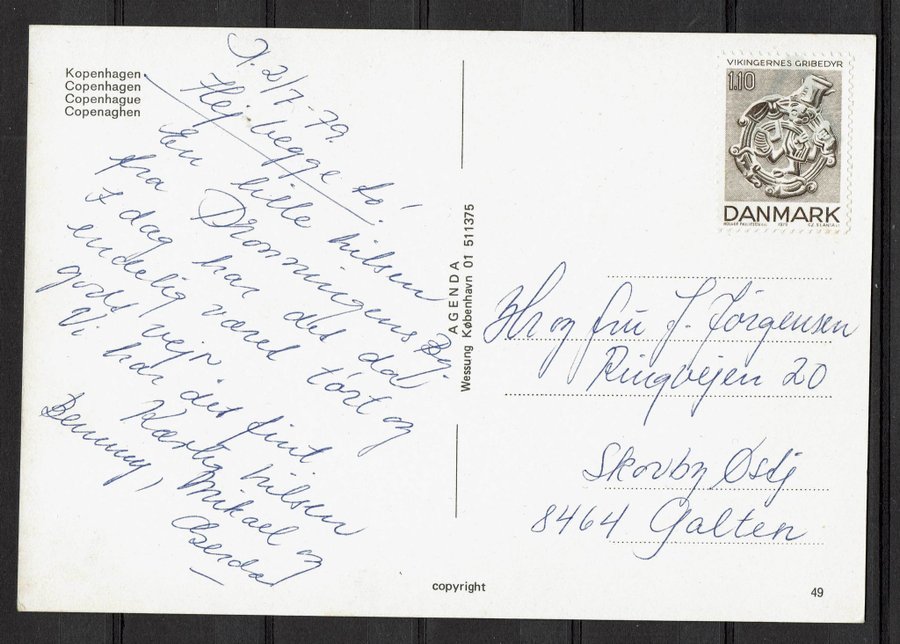 Kopenhagen
Copenhagen
Copenhague
Copenaghen
2/7-79.
Hej begge to!
En lille hilsen
fra Dronningens By.
I dag har det da
endelig været tørt og
godt vejr.
Vi har det fint
Kærlig hilsen
Benny, Mikael og
Gerda
AGENDA
Wessung København 01 511375
VIKINGERNES GRIBEDYR
1.10
DANMARK
Hr og fru J. Jørgensen
Ringvejen 20
Skovby Østj
8464 Galten
copyright
49